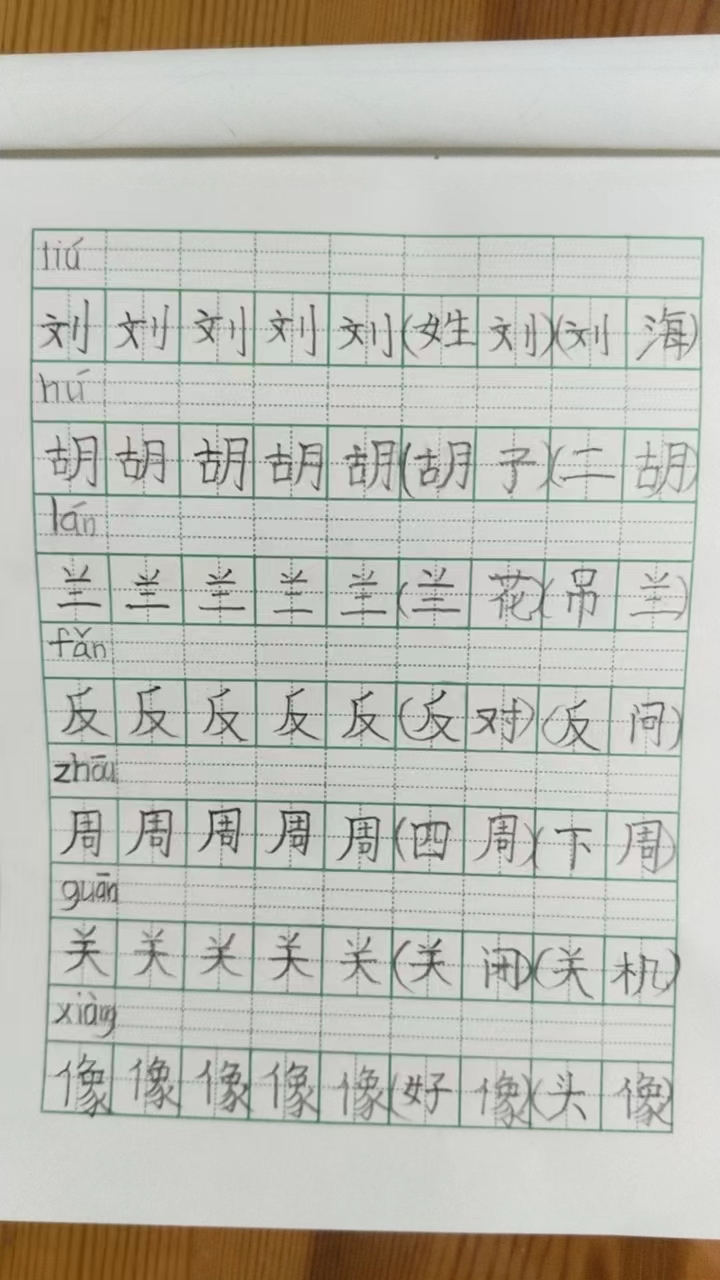 liú
刘 刘 刘 刘 刘 (姓 刘) (刘 海)
hú
胡 胡 胡 胡 胡 (胡 子) (二 胡)
lán
兰 兰 兰 兰 兰 (兰 花) (吊 兰)
fǎn
反 反 反 反 反 (反 对) (反 问)
zhōu
周 周 周 周 周 (四 周) (下 周)
guān
关 关 关 关 关 (关 闭) (关 机)
xiàng
像 像 像 像 像 (好 像) (头 像)